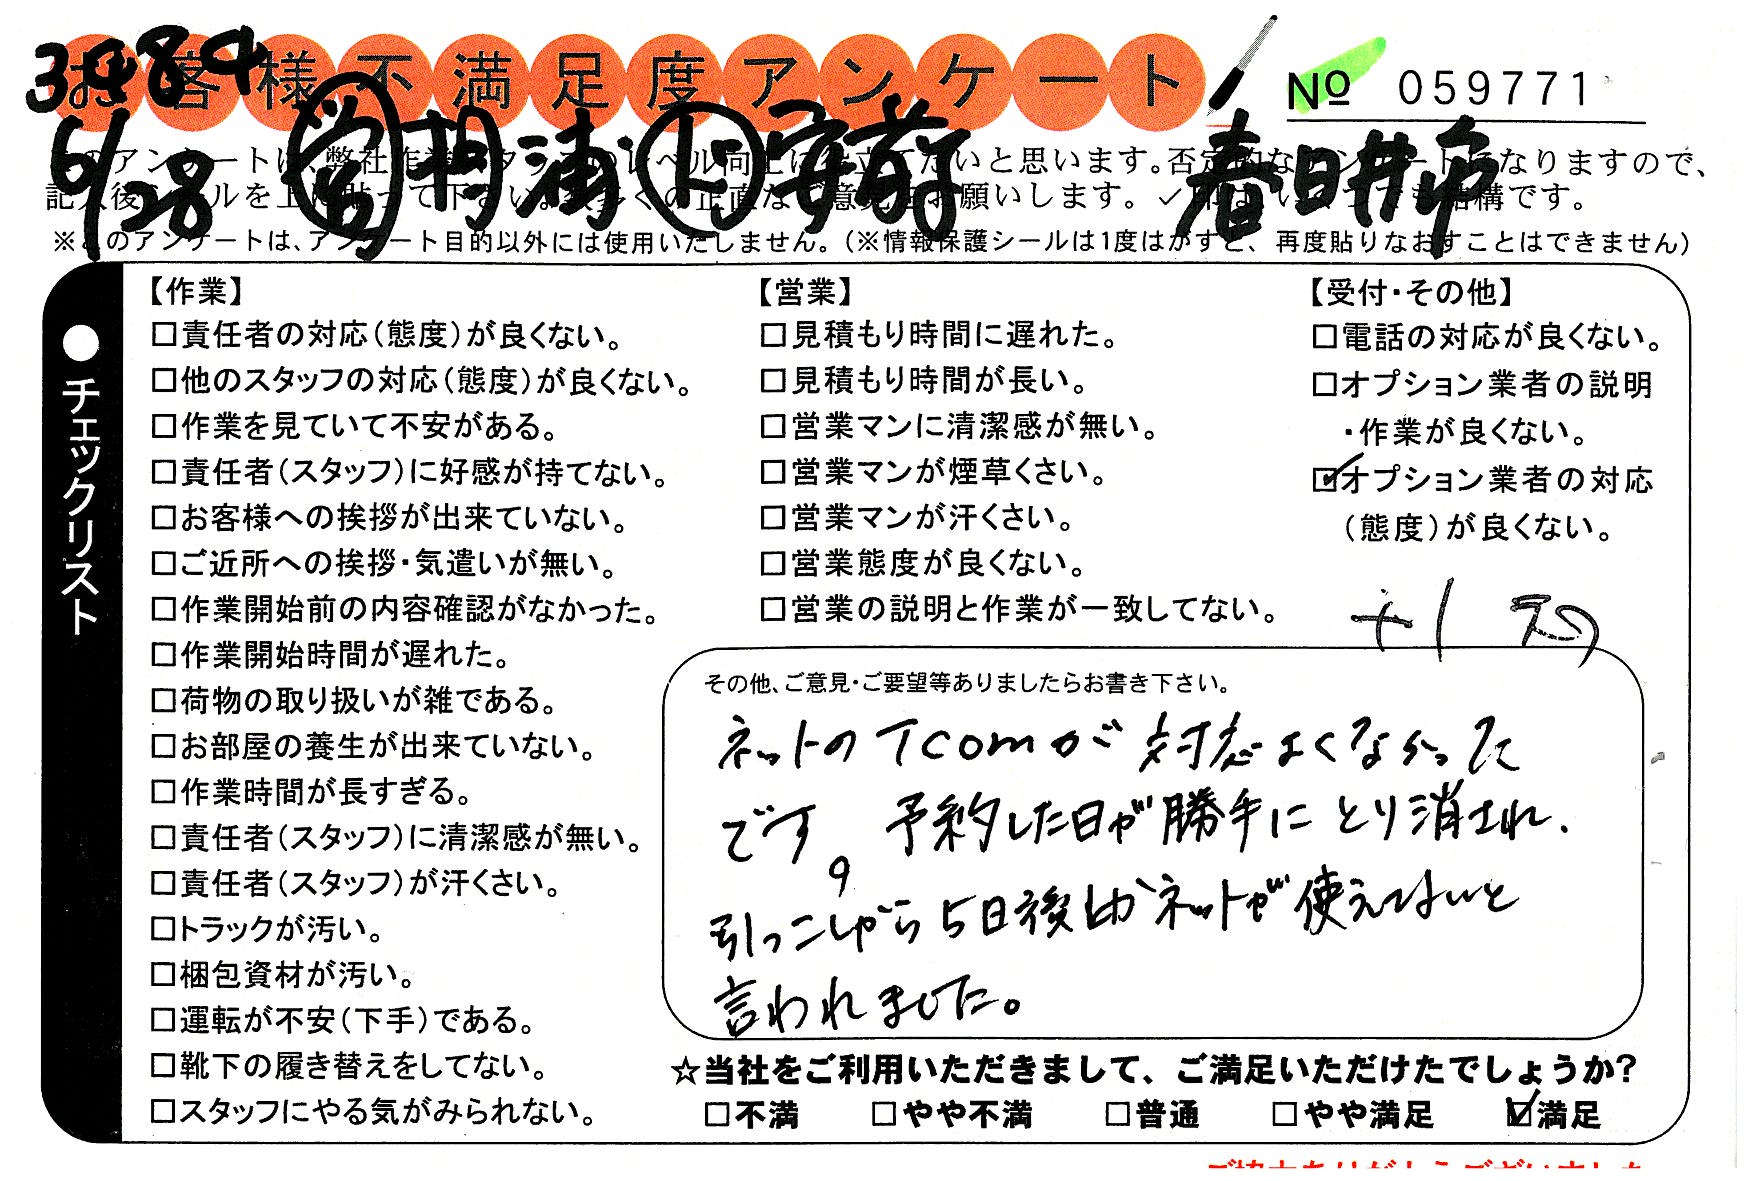 3989
お客様不満足度アンケート
№ 059771
6/28 営 浦 ト 安前 春日井市
このアンケートは、弊社作業スタッフのレベル向上に役立てたいと思います。否定的なアンケートになりますので、
記入後シールを上に貼って下さい。多くの正直なご意見をお願いします。✓印はいくつでも結構です。
※このアンケートは、アンケート目的以外には使用いたしません。(※情報保護シールは1度はがすと、再度貼りなおすことはできません)
●チェックリスト
【作業】
□責任者の対応(態度)が良くない。
□他のスタッフの対応(態度)が良くない。
□作業を見ていて不安がある。
□責任者(スタッフ)に好感が持てない。
□お客様への挨拶が出来ていない。
□ご近所への挨拶・気遣いが無い。
□作業開始前の内容確認がなかった。
□作業開始時間が遅れた。
□荷物の取り扱いが雑である。
□お部屋の養生が出来ていない。
□作業時間が長すぎる。
□責任者(スタッフ)に清潔感が無い。
□責任者(スタッフ)が汗くさい。
□トラックが汚い。
□梱包資材が汚い。
□運転が不安(下手)である。
□靴下の履き替えをしてない。
□スタッフにやる気がみられない。
【営業】
□見積もり時間に遅れた。
□見積もり時間が長い。
□営業マンに清潔感が無い。
□営業マンが煙草くさい。
□営業マンが汗くさい。
□営業態度が良くない。
□営業の説明と作業が一致してない。
【受付・その他】
□電話の対応が良くない。
□オプション業者の説明
・作業が良くない。
☑オプション業者の対応
(態度)が良くない。
その他、ご意見・ご要望等ありましたらお書き下さい。
ネットのTcomが対応よくなかった
です。予約した日が勝手にとり消され、
引っこしから5日後しかネットが使えないと
言われました。
☆当社をご利用いただきまして、ご満足いただけたでしょうか?
□不満 □やや不満 □普通 □やや満足 ☑満足
ご協力ありがとうございました